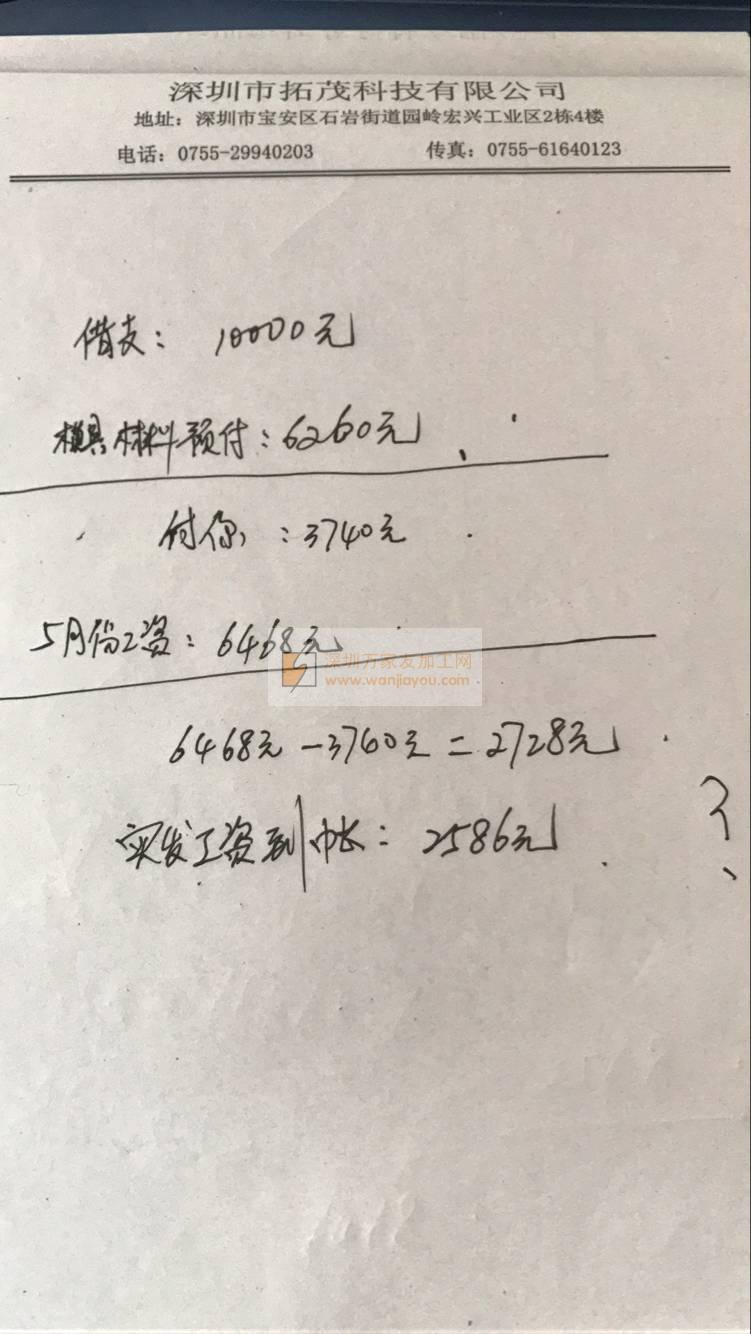 深圳市拓茂科技有限公司
地址：深圳市宝安区石岩街道园岭宏兴工业区2栋4楼
电话：0755-29940203 传真：0755-61640123
借支：10000元
模具材料预付：6260元
付你：3740元
5月份工资：6468元
深圳万家友加工网
www.wanjiayou.com
6468元-3740元=2728元
实发工资到帐：2586元
?